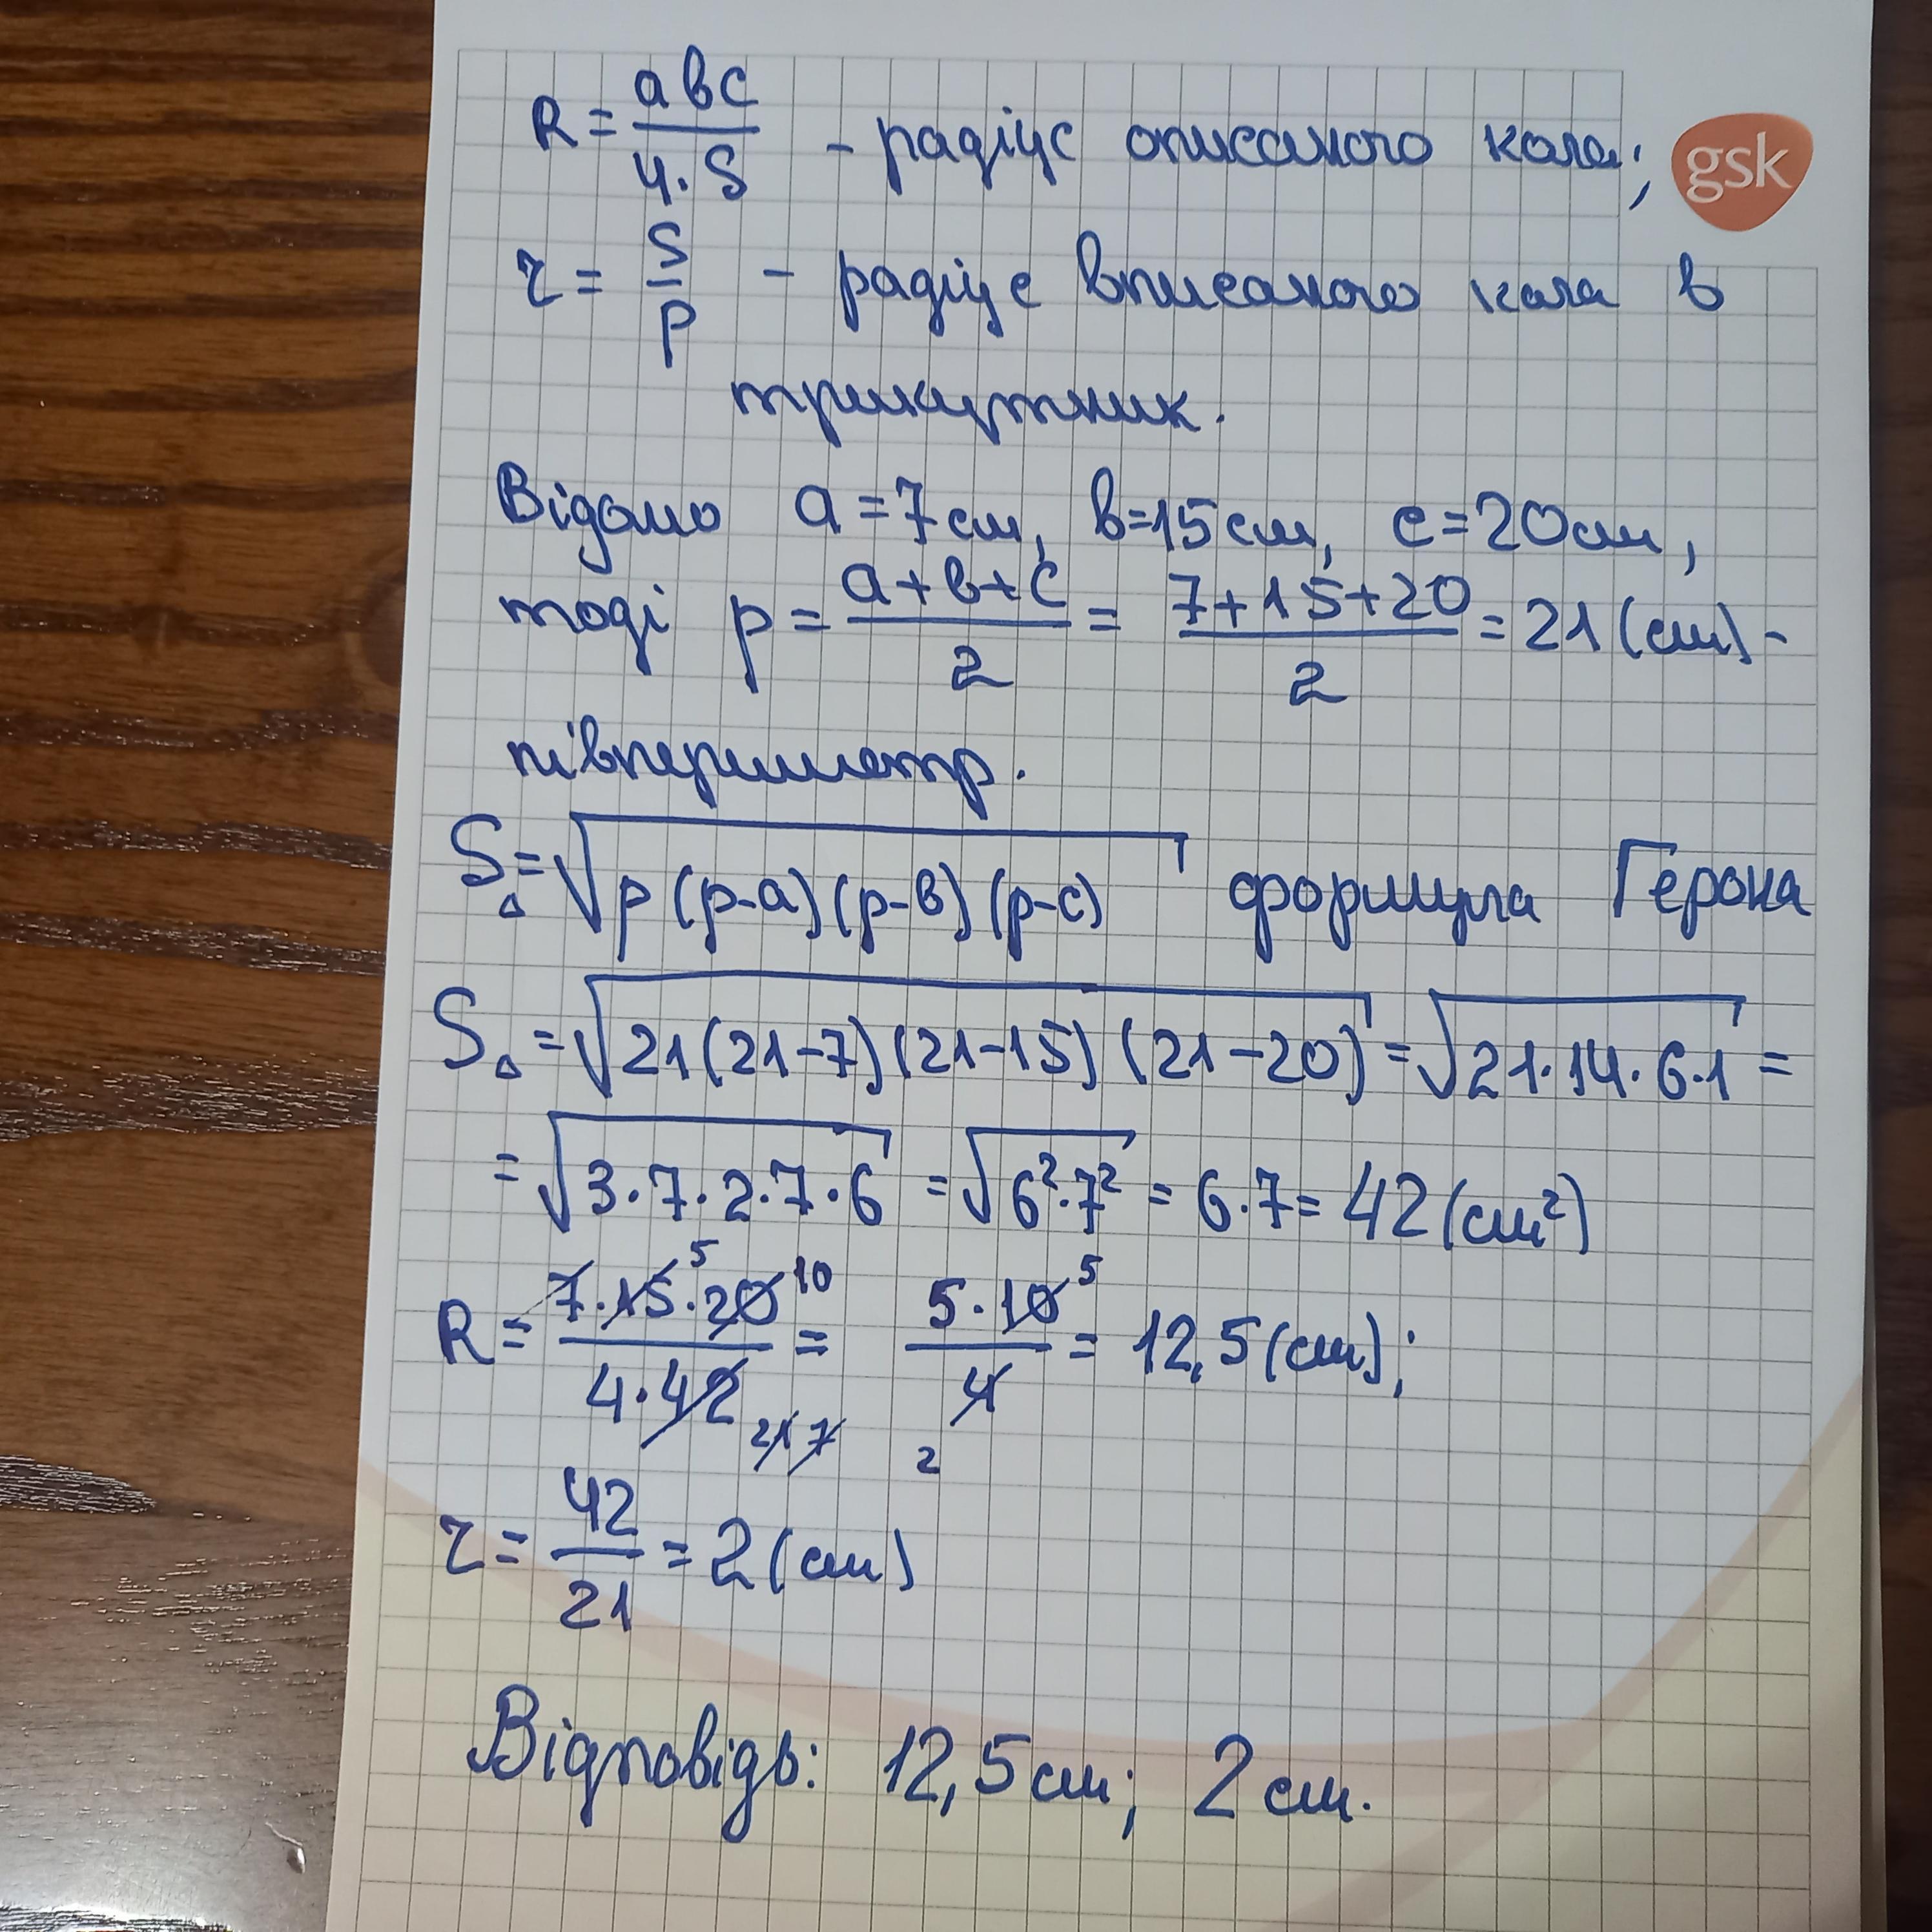 R = abc / 4·S - радіус описаного кола;
gsk
r = S / p - радіус вписаного кола в
трикутник.
Відомо a = 7 см, b = 15 см, c = 20 см,
тоді p = (a + b + c) / 2 = (7 + 15 + 20) / 2 = 21 (см) -
півпериметр.
S△ = √(p (p-a) (p-b) (p-c)) формула Герона
S△ = √(21 (21-7) (21-15) (21-20)) = √(21·14·6·1) =
= √(3·7·2·7·6) = √(6²·7²) = 6·7 = 42 (см²)
R = 7·15 5·20 10 / 4·42 21 7 = 5·10 5 / 4 2 = 12,5 (см);
r = 42 / 21 = 2 (см)
Відповідь: 12,5 см; 2 см.